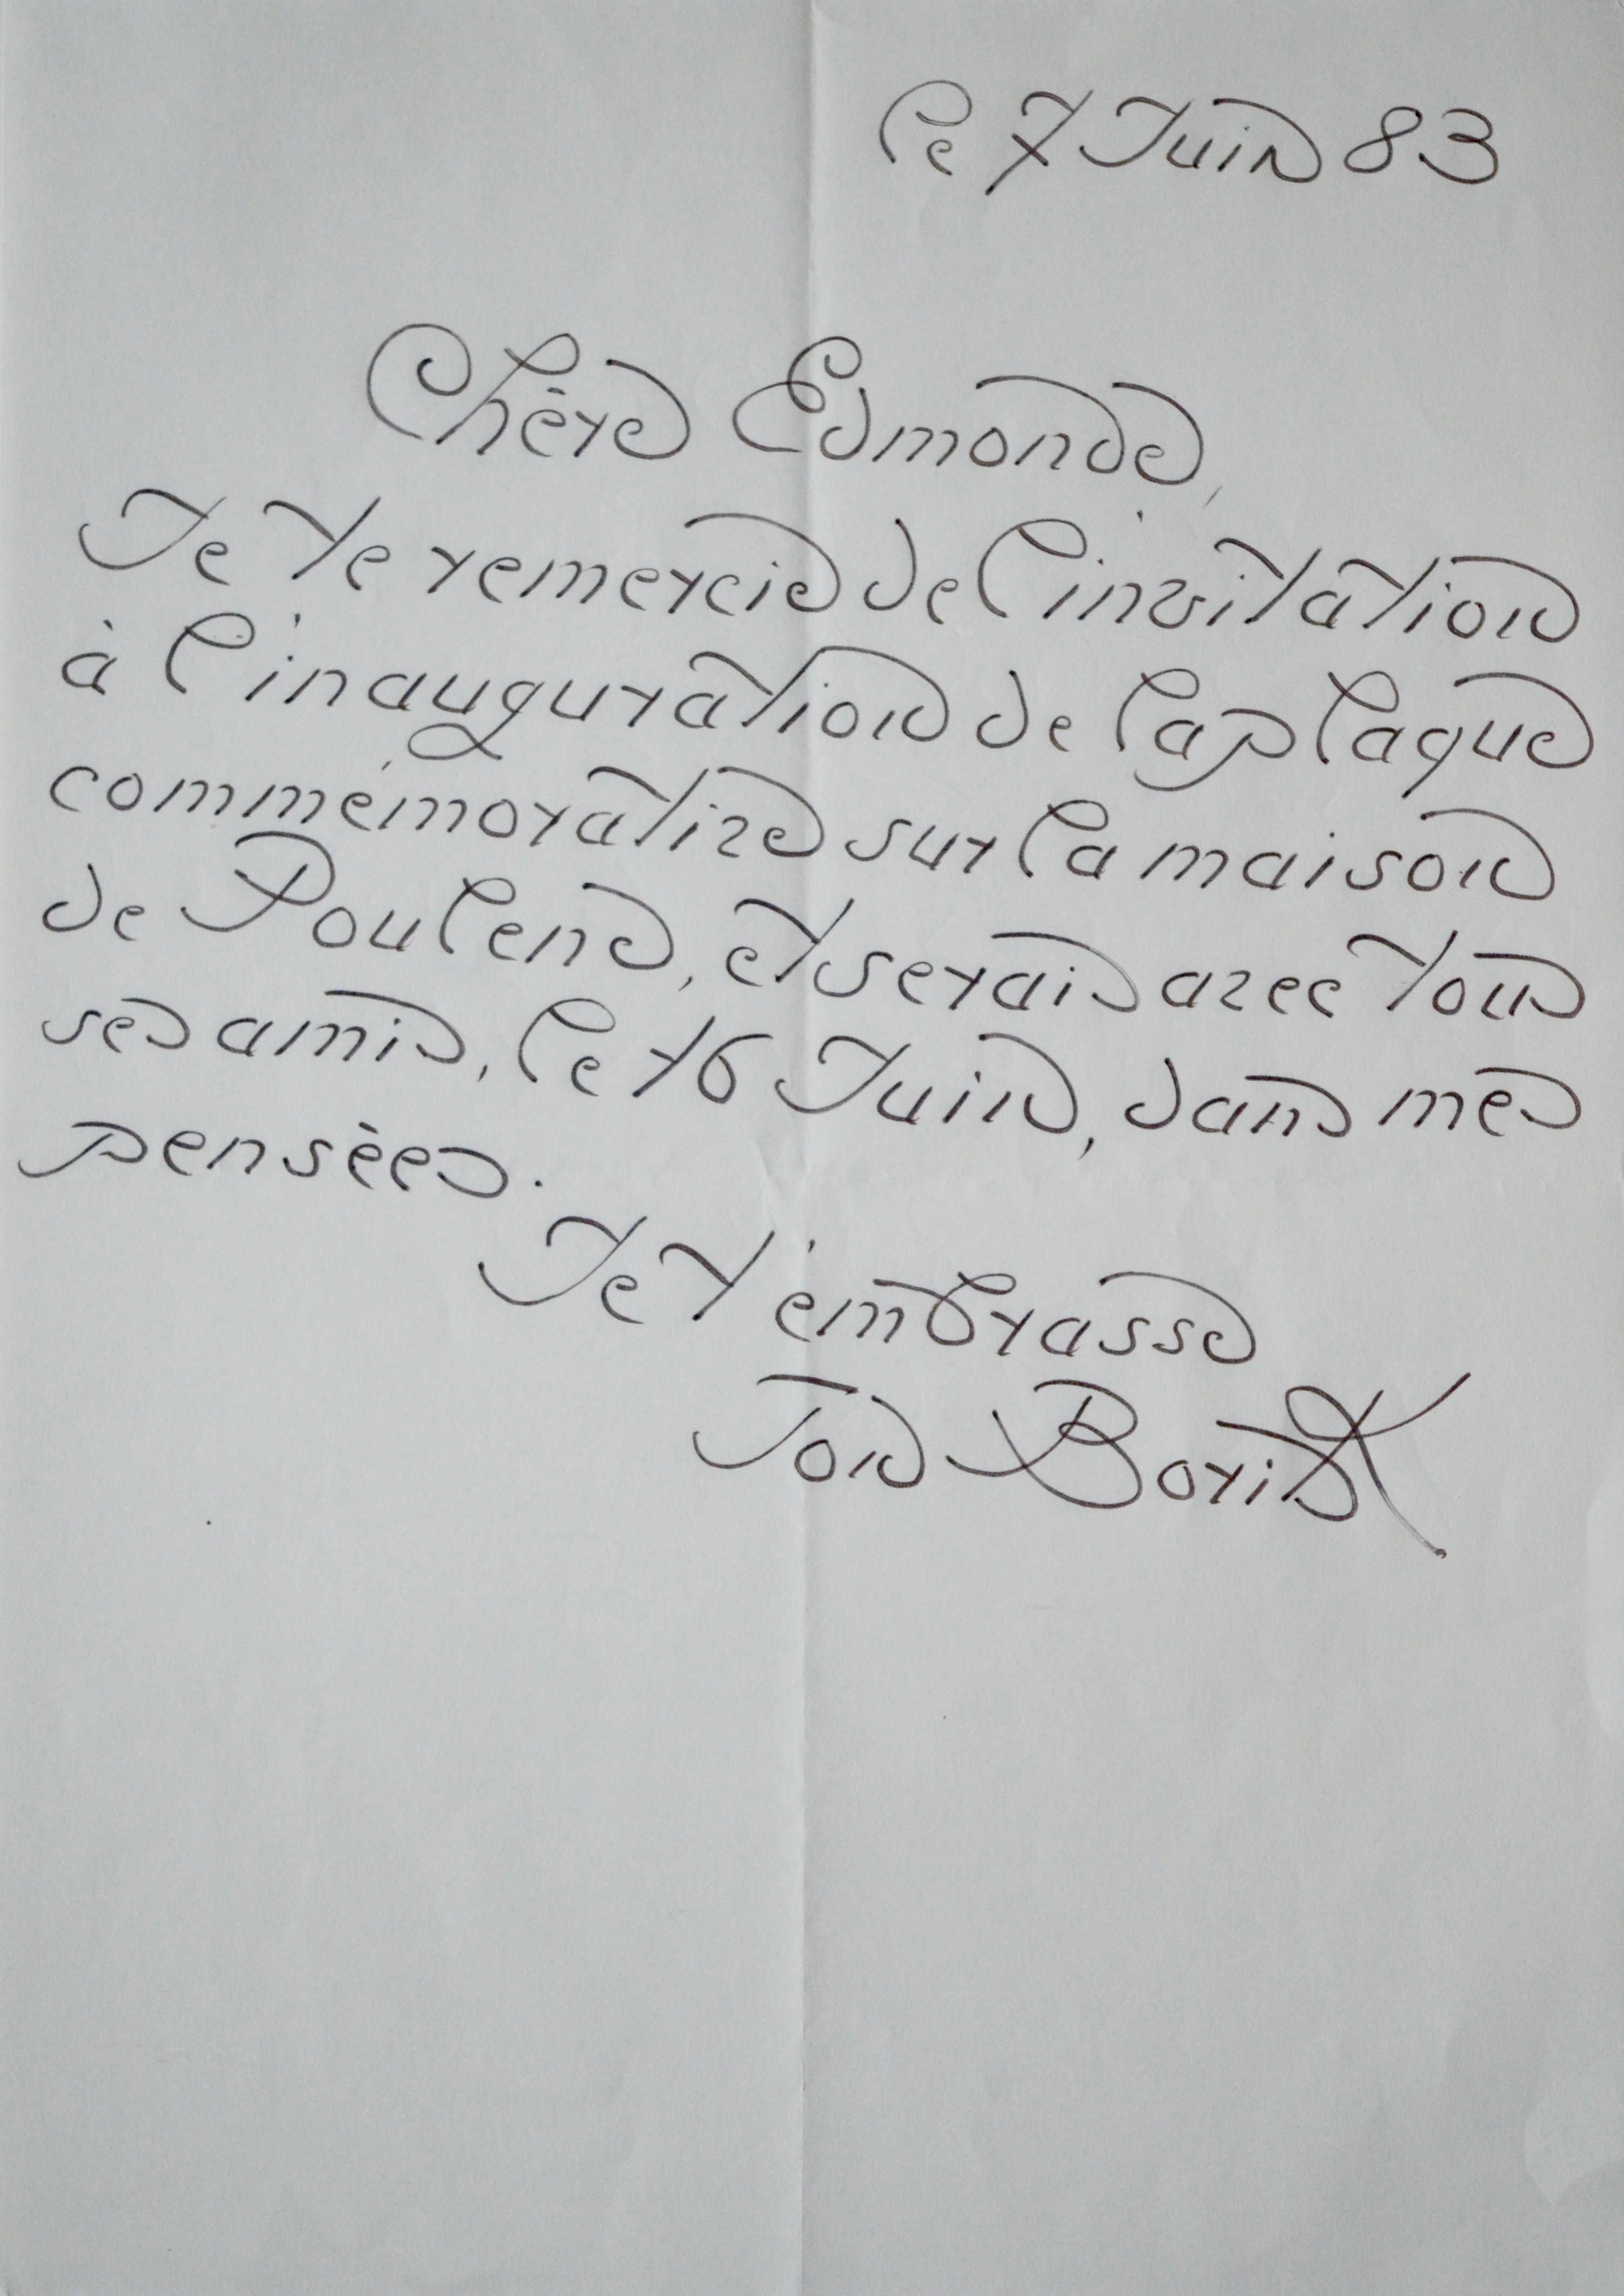 le 7 Juin 83
Chère Edmonde,
Je te remercie de l'invitation
à l'inauguration de la plaque
commémorative sur la maison
de Poulenc, et serais avec tous
ses amis, le 16 Juin, dans mes
pensées.
Je t'embrasse
Ton Boris